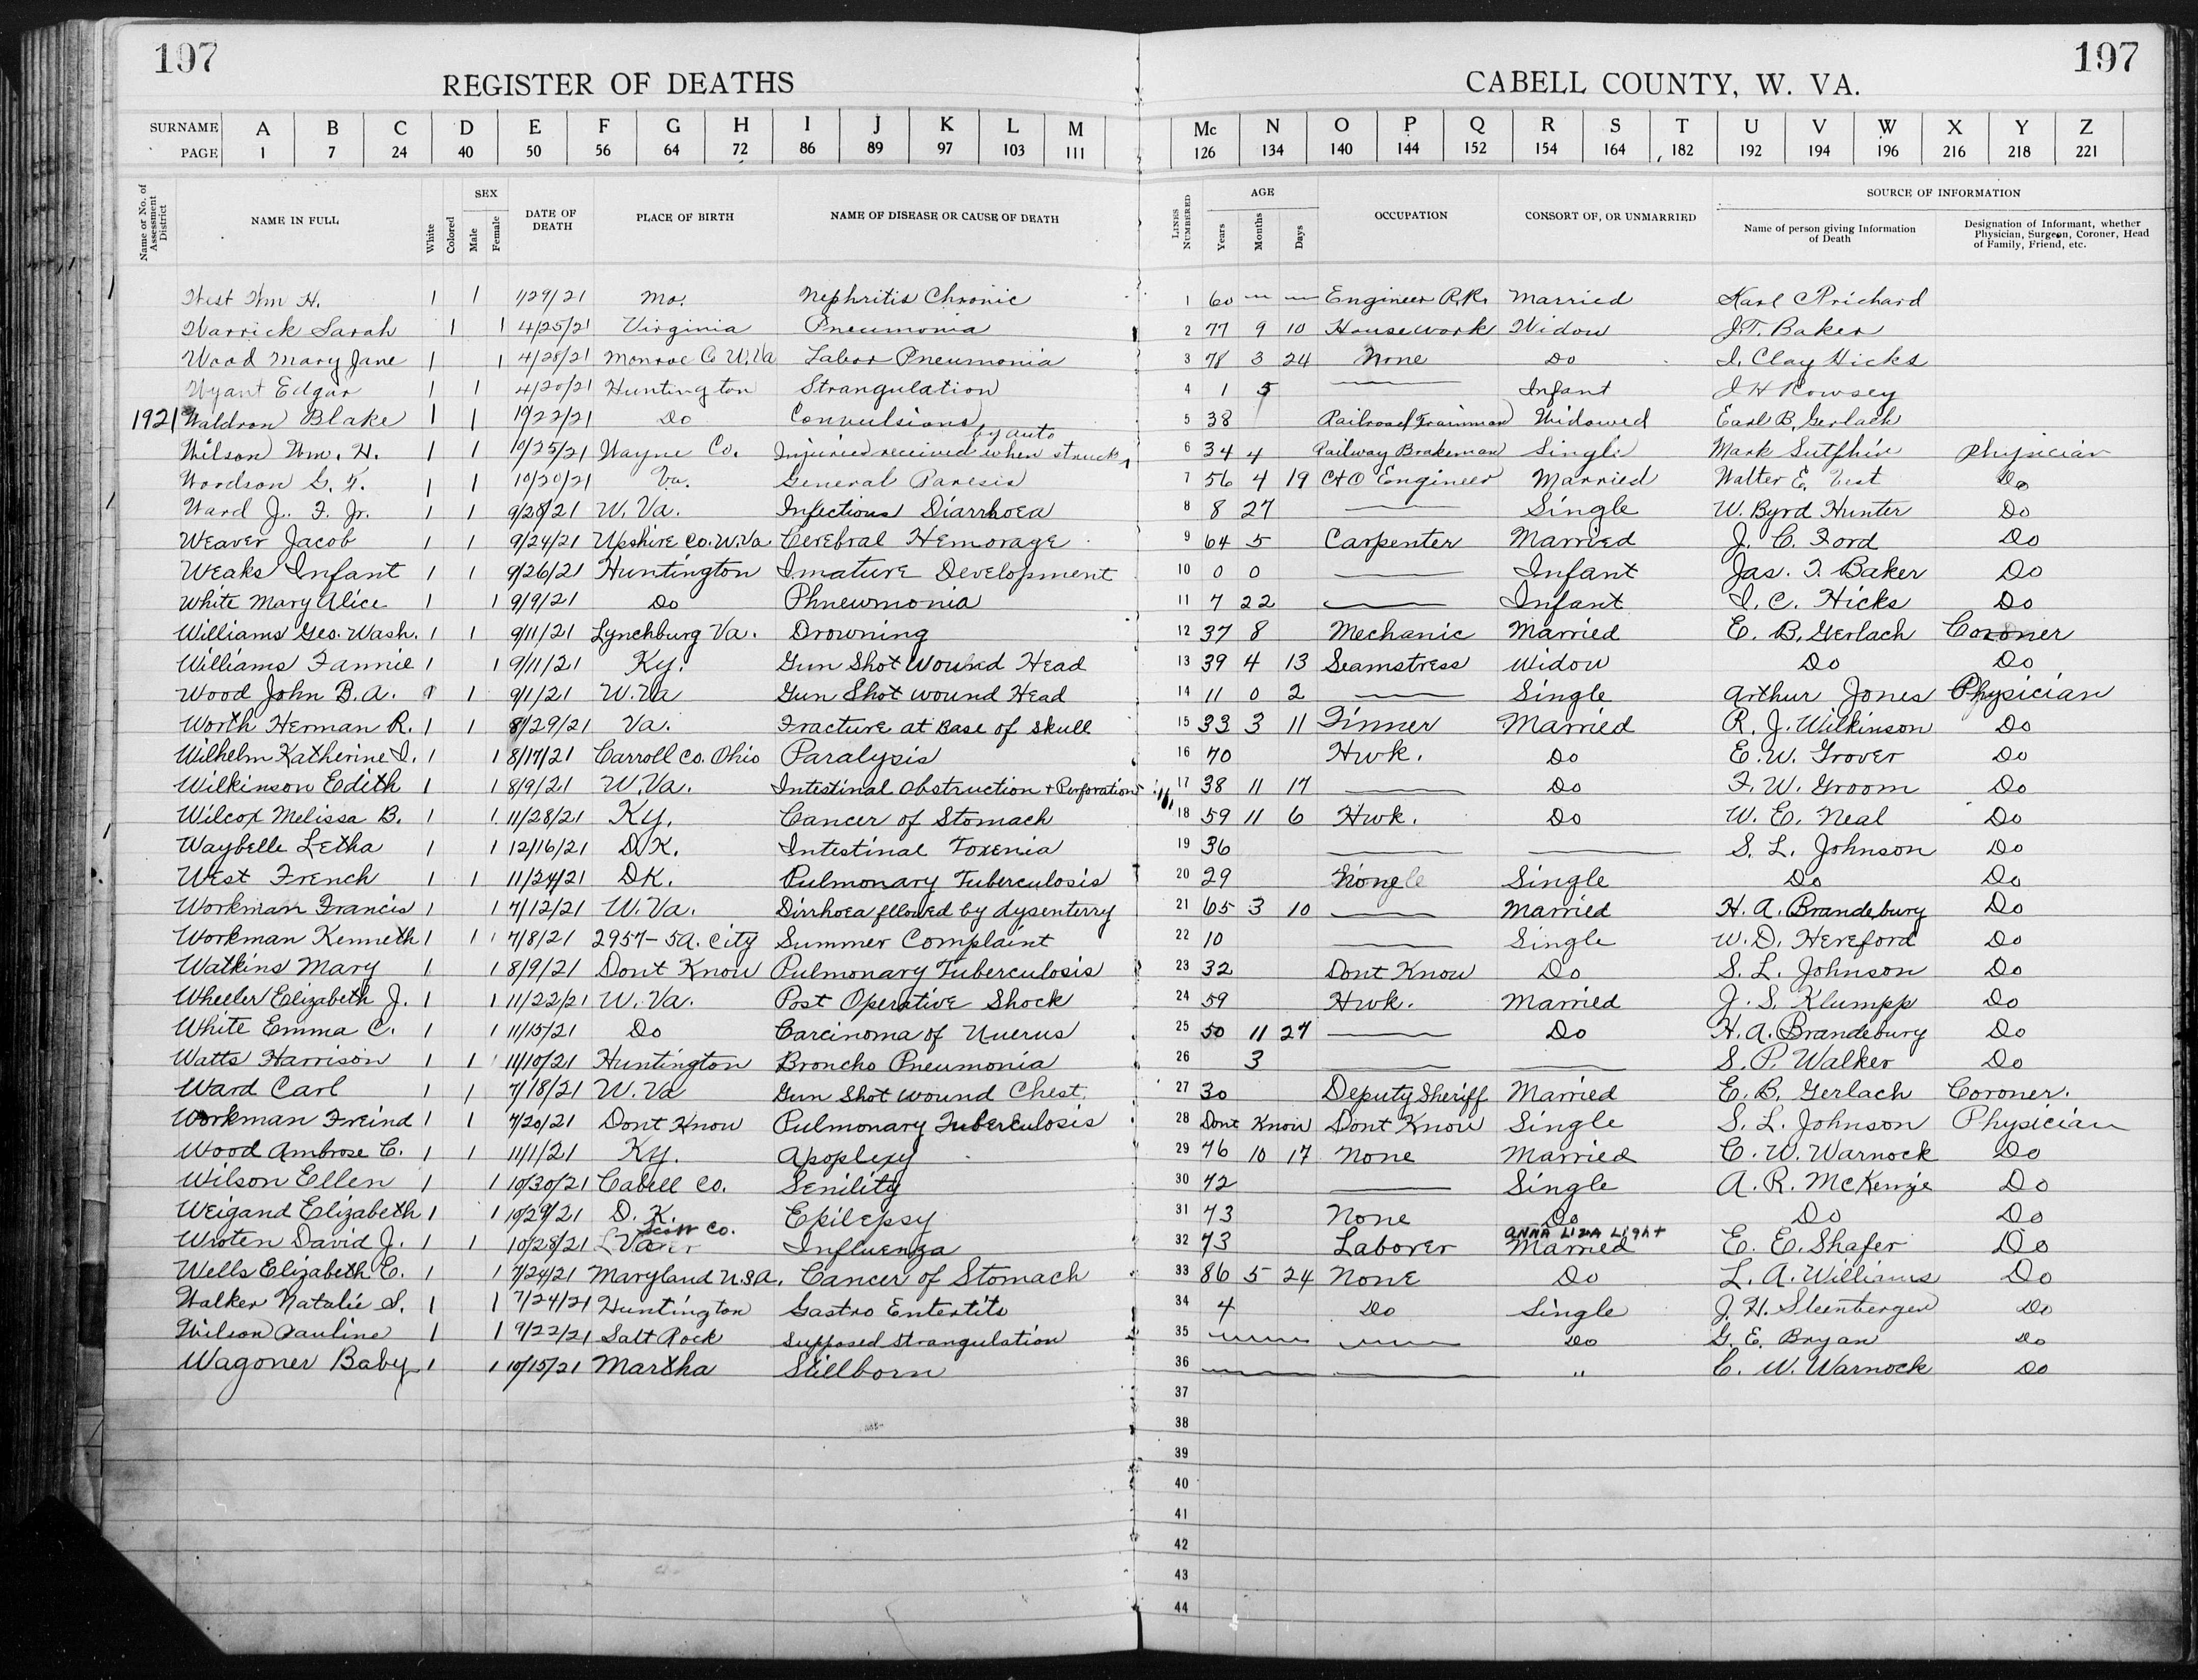 197 197
REGISTER OF DEATHS CABELL COUNTY, W. VA.
SURNAME A B C D E F G H I J K L M Mc N O P Q R S T U V W X Y Z
PAGE 1 7 24 40 50 56 64 72 86 89 97 103 111 126 134 140 144 152 154 164 182 192 194 196 216 218 221
Name or No. of Assessment District NAME IN FULL White Colored SEX Male Female DATE OF DEATH PLACE OF BIRTH NAME OF DISEASE OR CAUSE OF DEATH LINES NUMBERED AGE Years Months Days OCCUPATION CONSORT OF, OR UNMARRIED SOURCE OF INFORMATION Name of person giving Information of Death Designation of Informant, whether Physician, Surgeon, Coroner, Head of Family, Friend, etc.
West Wm H. 1 1 1/29/21 Mo. Nephritis Chronic 1 60 Engineer R.R. Married Karl C Prichard
Warrick Sarah 1 1 4/25/21 Virginia Pneumonia 2 77 9 10 Housework Widow J.T. Baker
Wood Mary Jane 1 1 4/28/21 Monroe Co W.Va Labor Pneumonia 3 78 3 24 None Do I. Clay Hicks
Wyant Edgar 1 1 4/20/21 Huntington Strangulation 4 1 5 Infant J H Rowsey
1921 Waldron Blake 1 1 Do Convulsions 5 38 Railroad Trainman Widowed Earl B. Gerlach
Wilson Wm. H. 1 1 10/25/21 Wayne Co. Injuries received when struck by auto 6 34 4 Railway Brakeman Single Mark Sutphin Physician
Woodson G. T. 1 1 10/20/21 Va. General Paresis 7 56 4 19 C+O Engineer Married Walter E. Vest Do
Ward J. F. Jr. 1 1 9/28/21 W. Va. Infectious Diarrhoea 8 8 27 Single W. Byrd Hunter Do
Weaver Jacob 1 1 9/24/21 Upshire Co. W.Va. Cerebral Hemorage 9 64 5 Carpenter Married J. C. Ford Do
Weaks Infant 1 1 9/26/21 Huntington Imature Development 10 0 0 Infant Jas. T. Baker Do
White Mary Alice 1 1 9/9/21 Do Phnewmonia 11 7 22 Infant I. C. Hicks Do
Williams Geo. Wash. 1 1 9/11/21 Lynchburg Va. Drowning 12 37 8 Mechanic Married E. B. Gerlach Coroner
Williams Fannie 1 1 9/11/21 Ky. Gun Shot Wound Head 13 39 4 13 Seamstress Widow Do Do
Wood John B. A. 1 1 9/1/21 W. Va Gun Shot wound Head 14 11 0 2 Single Arthur Jones Physician
Worth Herman R. 1 1 8/29/21 Va. Fracture at Base of Skull 15 33 3 11 Tinner Married R. J. Wilkinson Do
Wilhelm Katherine I. 1 1 8/17/21 Carroll Co. Ohio Paralysis 16 70 Hwk. Do E. W. Grover Do
Wilkinson Edith 1 1 8/9/21 W. Va. Intestinal Obstruction + Perforation 17 38 11 17 Do F. W. Groom Do
Wilcox Melissa B. 1 1 11/28/21 Ky. Cancer of Stomach 18 59 11 6 Hwk. Do W. E. Neal Do
Waybelle Letha 1 1 12/16/21 D.K. Intestinal Toxenia 19 36 S. L. Johnson Do
West French 1 1 11/24/21 DK. Pulmonary Tuberculosis 20 29 None Single Do Do
Workman Francis 1 1 7/12/21 W. Va. Dirrhoea fllowed by dysenterry 21 65 3 10 Married H. A. Brandebury Do
Workman Kenneth 1 1 7/8/21 2957-5A. City Summer Complaint 22 10 Single W. D. Hereford Do
Watkins Mary 1 1 8/9/21 Dont Know Pulmonary Tuberculosis 23 32 Dont Know Do S. L. Johnson Do
Wheeler Elizabeth J. 1 1 11/22/21 W. Va. Post Operative Shock 24 59 Hwk. Married J. S. Klumpp Do
White Emma C. 1 1 11/15/21 Do Carcinoma of Uuerus 25 50 11 27 Do H. A. Brandebury Do
Watts Harrison 1 1 11/10/21 Huntington Broncho Pneumonia 26 3 S. P. Walker Do
Ward Carl 1 1 7/18/21 W. Va Gun Shot wound Chest. 27 30 Deputy Sheriff Married E. B. Gerlach Coroner.
Workman Freind 1 1 7/20/21 Dont Know Pulmonary Tuberculosis 28 Dont Know Dont Know Single S. L. Johnson Physician
Wood Ambrose C. 1 1 11/1/21 Ky. Apoplexy 29 76 10 17 None Married C. W. Warnock Do
Wilson Ellen 1 1 10/30/21 Cabell Co. Senility 30 72 Single A. R. McKenzie Do
Weigand Elizabeth 1 1 10/29/21 D. K. Epilepsy 31 73 None Do Do Do
Wroten David J. 1 1 10/28/21 Scott Co. Va Influenza 32 73 Laborer Married ANNA LIZA LIGHT E. E. Shafer Do
Wells Elizabeth C. 1 1 7/24/21 Maryland U.S.A. Cancer of Stomach 33 86 5 24 None Do L. A. Williams Do
Walker Natalie S. 1 1 7/24/21 Huntington Gastro Entertits 34 4 Do Single J. H. Steenbergen Do
Wilson Pauline 1 1 9/22/21 Salt Rock Supposed Strangulation 35 Do G. E. Bryan Do
Wagoner Baby 1 1 10/15/21 Martha Stillborn 36 " C. W. Warnock Do
37
38
39
40
41
42
43
44